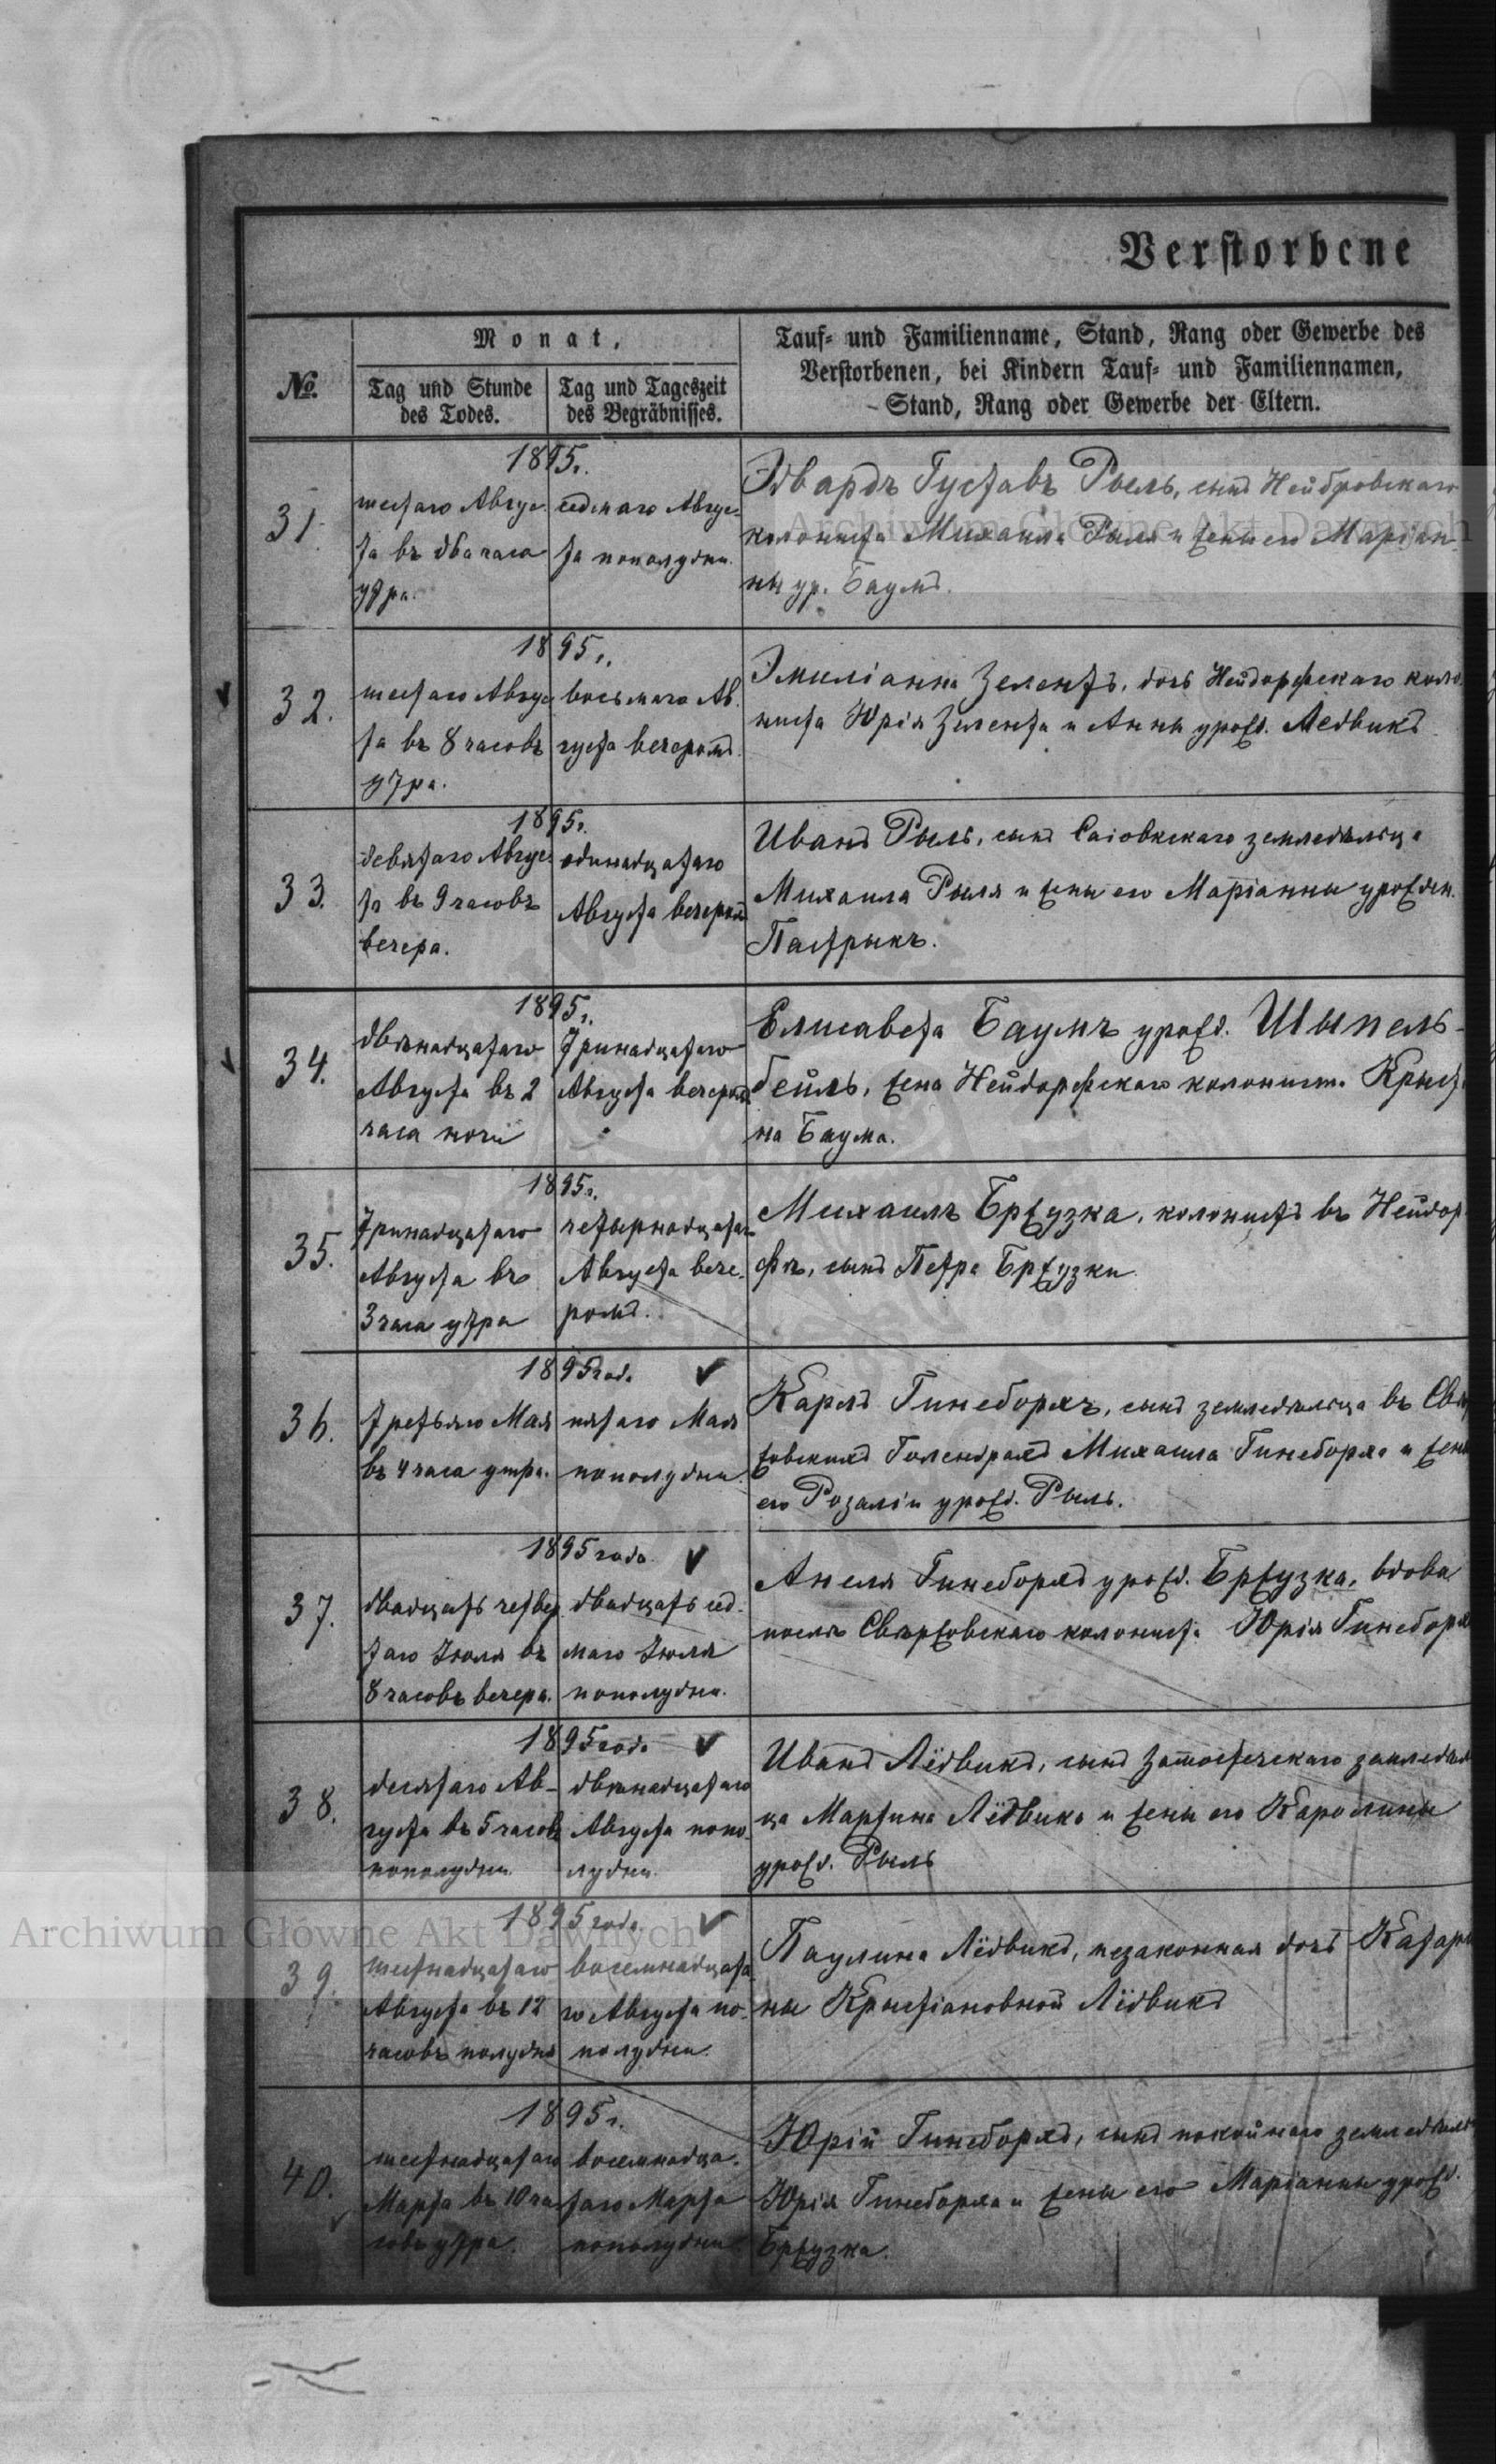 Verstorbene
№.
Monat,
Tag und Stunde
des Todes.
Tag und Tageszeit
des Begräbnisses.
Tauf- und Familienname, Stand, Rang oder Gewerbe des
Verstorbenen, bei Kindern Tauf- und Familiennamen,
Stand, Rang oder Gewerbe der Eltern.
31.
1895 г.
шестаго Авгус-
та въ два часа
утра.
седьмаго Авгус-
та пополудни.
Эдвардъ Густавъ Рыль, сынъ Нейбровскаго
колониста Михаила Рыля и жены его Маріан-
ны ур. Баумъ.
32.
1895 г.
шестаго Авгус
та въ 8 часовъ
утра.
восьмаго Ав-
густа вечеромъ.
Эмиліанна Зелентъ, дочь Нейдорфскаго коло-
ниста Юрія Зелента и Анны урожд. Ледвикъ
33.
1895 г.
девятаго Авгус
та въ 9 часовъ
вечера.
одинадцатаго
Августа вечеромъ
Иванъ Рыль, сынъ земледѣльца
Михаила Рыля и жены его Маріанны урожден.
Пастрыкъ.
34.
1895 г.
двѣнадцатаго
Августа въ 2
часа ночи
тринадцатаго
Августа вечеромъ
Елисавета Баумъ урожд. Шыпель-
бейль, жена Нейдорфскаго колониста Крыст
на Баума.
35.
1895 г.
тринадцатаго
Августа въ
3 часа утра
четырнадцатаго
Августа вече-
ромъ.
Михаилъ Бржузка, колонистъ въ Нейдор
фѣ, сынъ Петра Бржузки
36.
1895 года
третьяго Мая
въ 4 часа утра.
пятаго Мая
пополудни.
Карлъ Гинеборхъ, сынъ земледѣльца въ Свѣр
жовскихъ Голендрахъ Михаила Гинеборха и жены
его Розаліи урожд. Рыль.
37.
1895 года
двадцать четвер
таго Іюля въ
8 часовъ вечера.
двадцать сед-
маго Іюля
пополудни.
Анеля Гинеборхъ урожд. Бржузка, вдова
послѣ Свѣржовскаго колониста Юрія Гинеборха
38.
1895 года
десятаго Ав-
густа въ 5 часовъ
пополудни.
двѣнадцатаго
Августа попо-
лудни.
Иванъ Лёдвикъ, сынъ земледѣль
ца Мартина Лёдвика и жены его Каролины
урожд. Рыль
39.
1895 года
шестнадцатаго
Августа въ 12
часовъ полудня
восемнадцата
го Августа по-
полудни.
Паулина Лёдвикъ, незаконная дочь Катари
ны Крыстіановной Лёдвикъ
40.
1895 г.
шестнадцатаго
Марта въ 10 ча-
совъ утра.
восемнадца-
таго Марта
пополудни.
Юрій Гинеборхъ, сынъ покойнаго земледѣль
Юрія Гинеборха и жены его Маріанны урожд.
Бржузка.
Archiwum Główne Akt Dawnych
Archiwum Główne Akt Dawnych